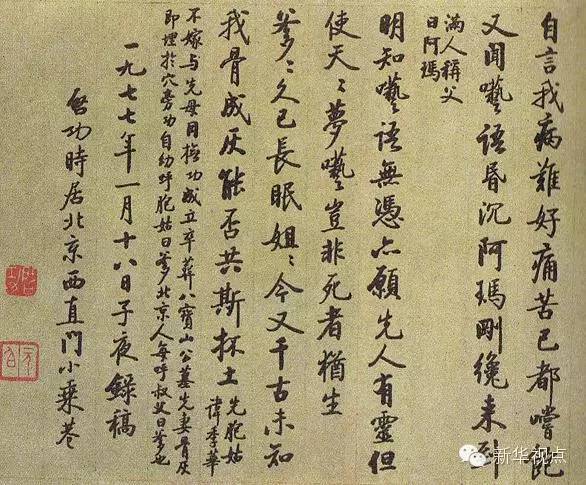 自言我病難好痛苦已都嚐飽
又聞囈語昏沉阿瑪剛纔来到
滿人稱父
曰阿瑪
明知囈語無憑亦願先人有靈但
使天〻夢囈豈非死者猶生
爹〻久已長眠姐〻今又千古未知
我骨成灰能否共斯抔土
先胞姑
諱季華
不嫁与先母同撫功成立卒葬八寶山公墓先妻骨灰
即埋於穴旁功自幼呼胞姑曰爹北京人每呼叔父曰爹也
一九七七年一月十八日子夜錄稿
啓功時居北京西直門小乘巷
新华视点